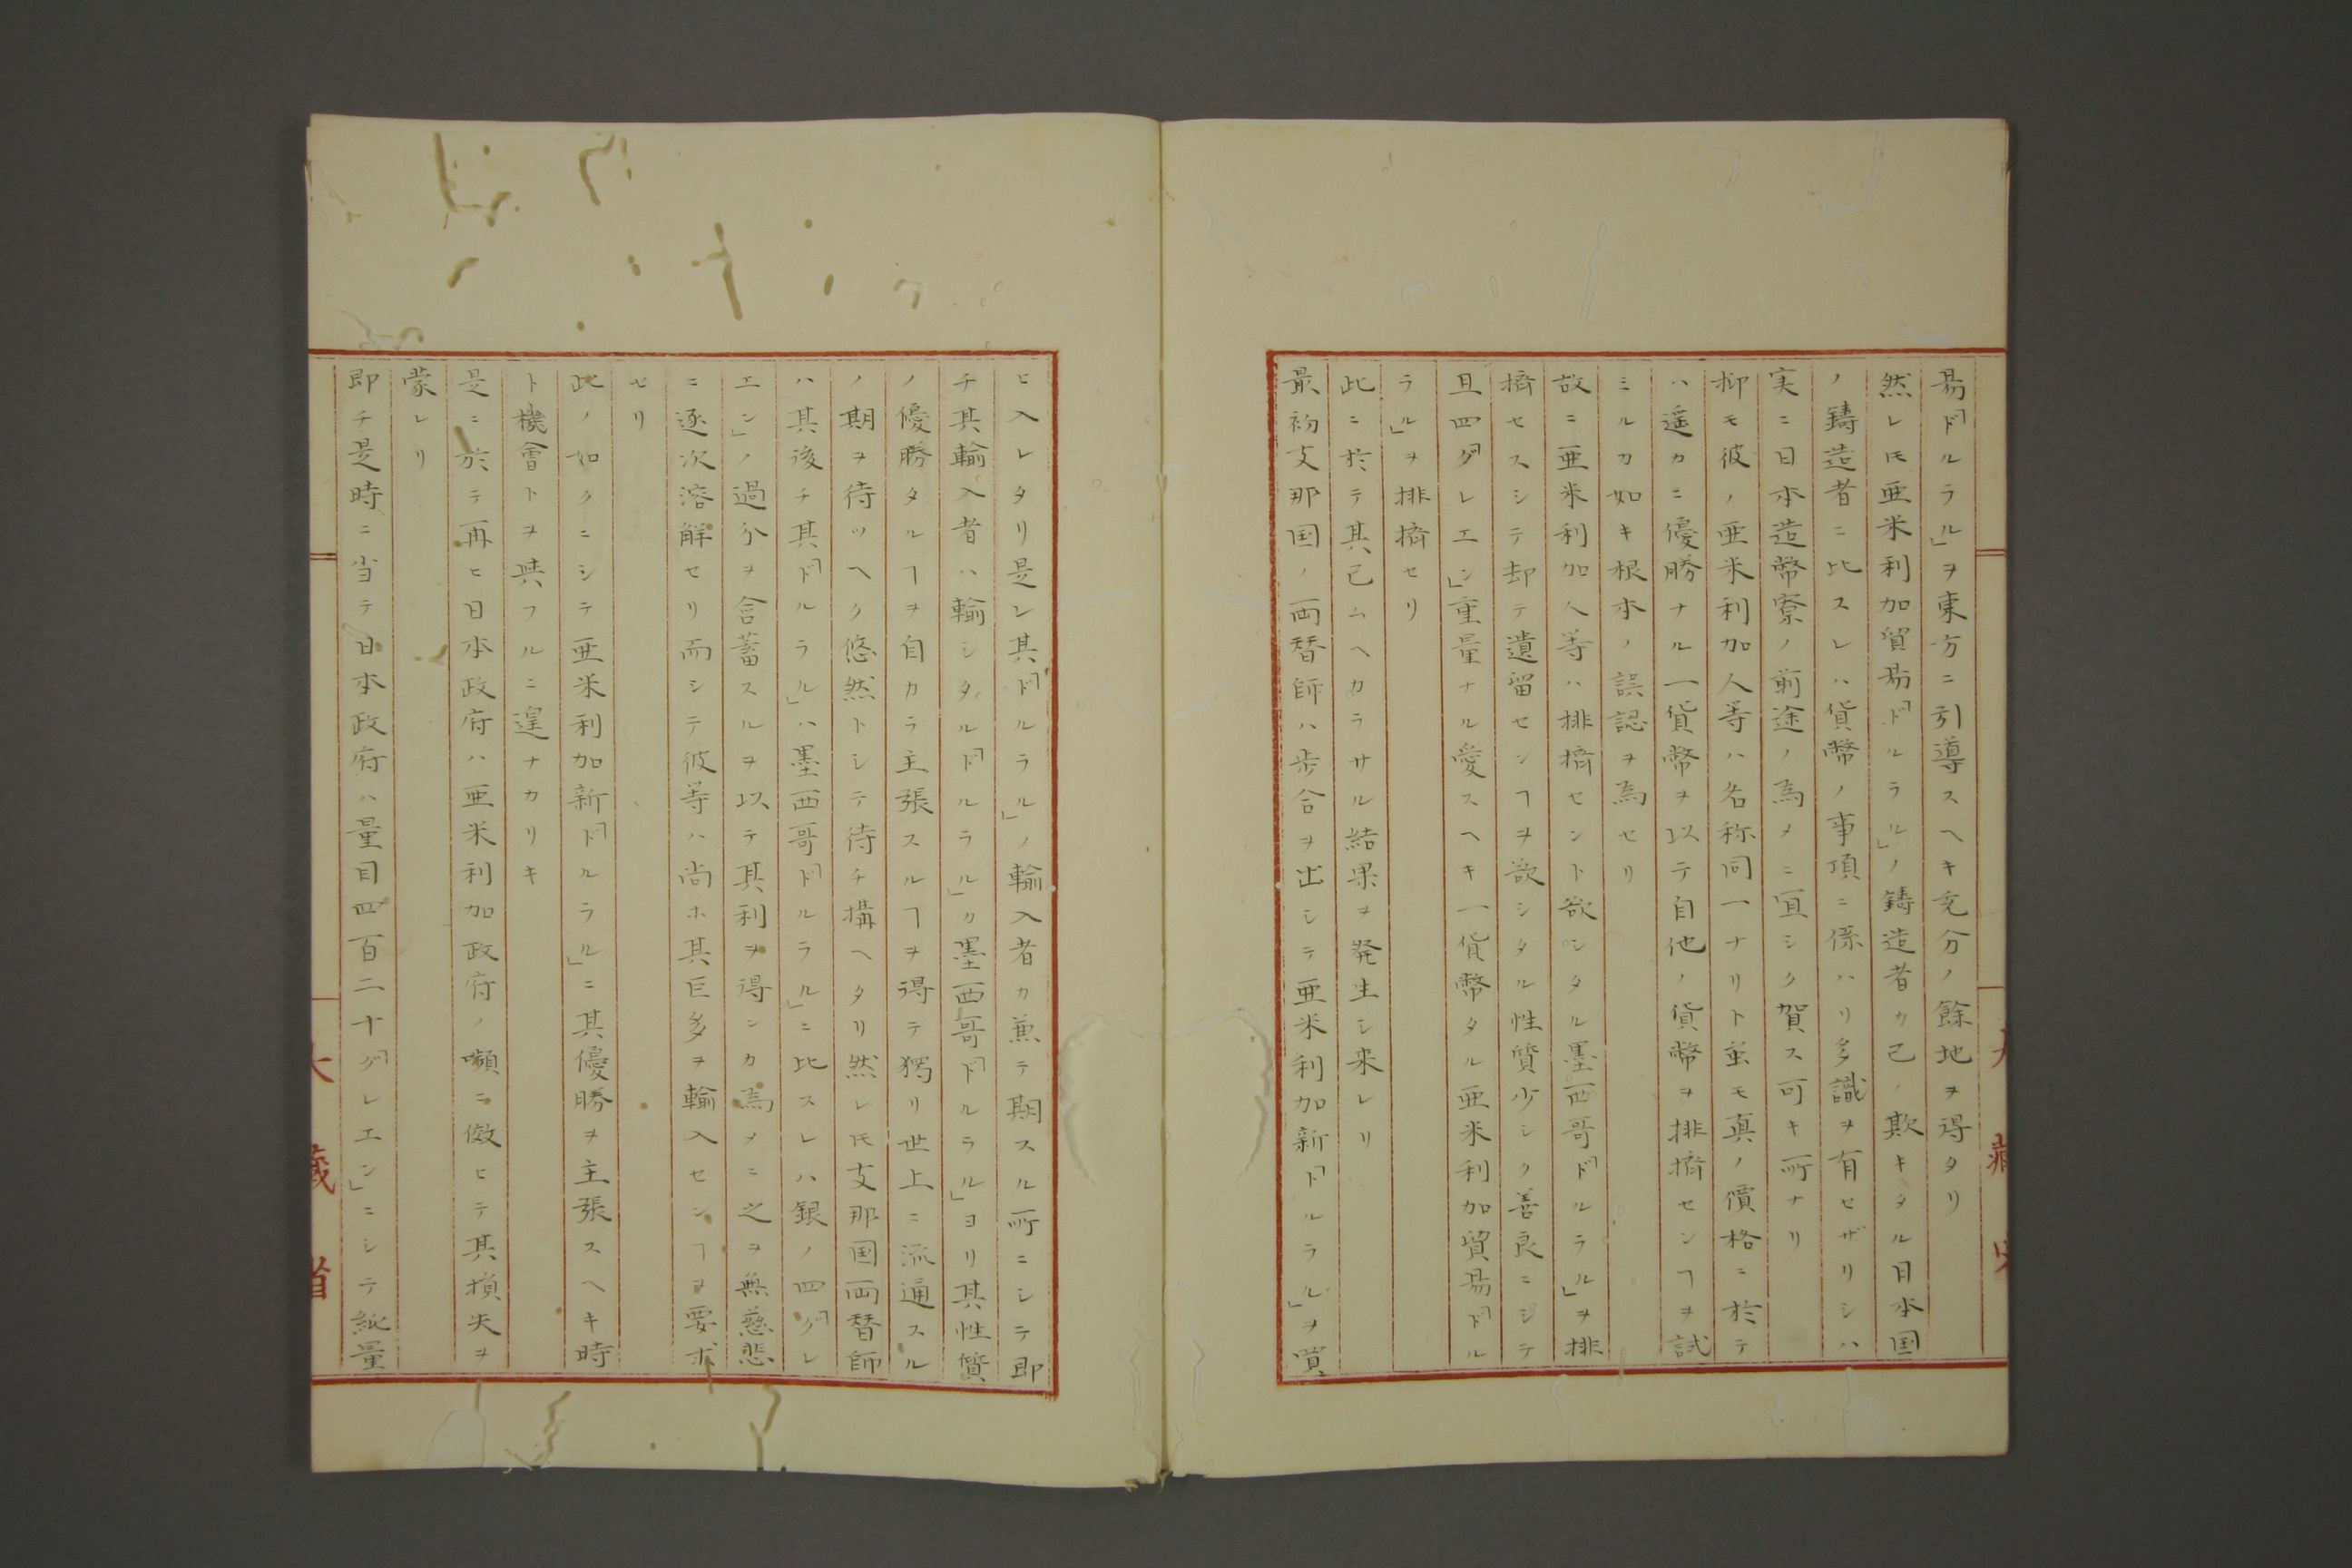 易「ドルラル」ヲ東方ニ引導スヘキ充分ノ餘地ヲ得タリ
然レ𪜈亜米利加貿易「ドルラル」ノ鋳造者カ己ノ欺キタル日本国
ノ鋳造者ニ比スレハ貨幣ノ事項ニ係ハリ多識ヲ有セザリシハ
実ニ日本造幣寮ノ前途ノ為メニ宜シク賀ス可キ所ナリ
抑モ彼ノ亜米利加人等ハ名称同一ナリト虽モ真ノ價格ニ於テ
ハ遥カニ優勝ナル一貨幣ヲ以テ自他ノ貨幣ヲ排擠センヿヲ試
ミルカ如キ根本ノ誤認ヲ為セリ
故ニ亜米利加人等ハ排擠セント欲シタル墨西哥「ドルラル」ヲ排
擠セスシテ却テ遺留センヿヲ欲シタル性質少シク善良ニシテ
且四「グレエン」重量ナル愛スヘキ一貨幣タル亜米利加貿易「ドル
ラル」ヲ排擠セリ
此ニ於テ其已ムヘカラサル結果ヲ発生シ来レリ
最初支那国ノ両替師ハ歩合ヲ出シテ亜米利加新「ドルラル」ヲ買
ヒ入レタリ是レ其「ドルラル」ノ輸入者カ兼テ期スル所ニシテ即
チ其輸入者ハ輸シタル「ドルラル」カ墨西哥「ドルラル」ヨリ其性質
ノ優勝タルヿヲ自カラ主張スルヿヲ得テ獨リ世上ニ流通スル
ノ期ヲ待ツヘク悠然トシテ待チ構ヘタリ然レ𪜈支那国両替師
ハ其後チ其「ドルラル」ハ墨西哥「ドルラル」ニ比スレハ銀ノ四「グレ
エン」ノ過分ヲ含蓄スルヲ以テ其利ヲ得ンカ為メニ之ヲ無慈悲
ニ逐次溶解セリ而シテ彼等ハ尚ホ其巨多ヲ輸入センヿヲ要求
セリ
此ノ如クニシテ亜米利加新「ドルラル」ニ其優勝ヲ主張スヘキ時
ト機會トヲ與フルニ遑ナカリキ
是ニ於テ再ヒ日本政府ハ亜米利加政府ノ嚬ニ傚ヒテ其損失ヲ
蒙レリ
即チ是時ニ当テ日本政府ハ量目四百二十「グレエン」ニシテ純量
大藏省